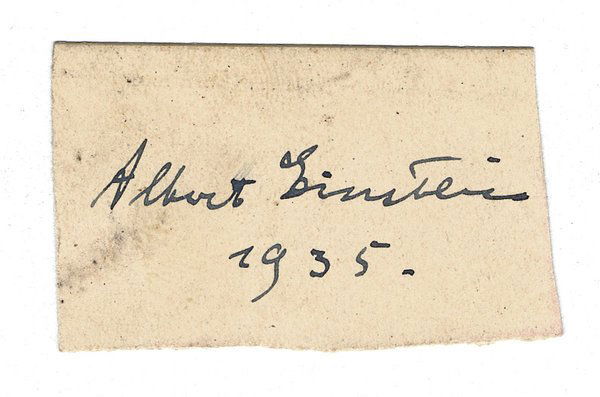 Albert Einstein
1935.